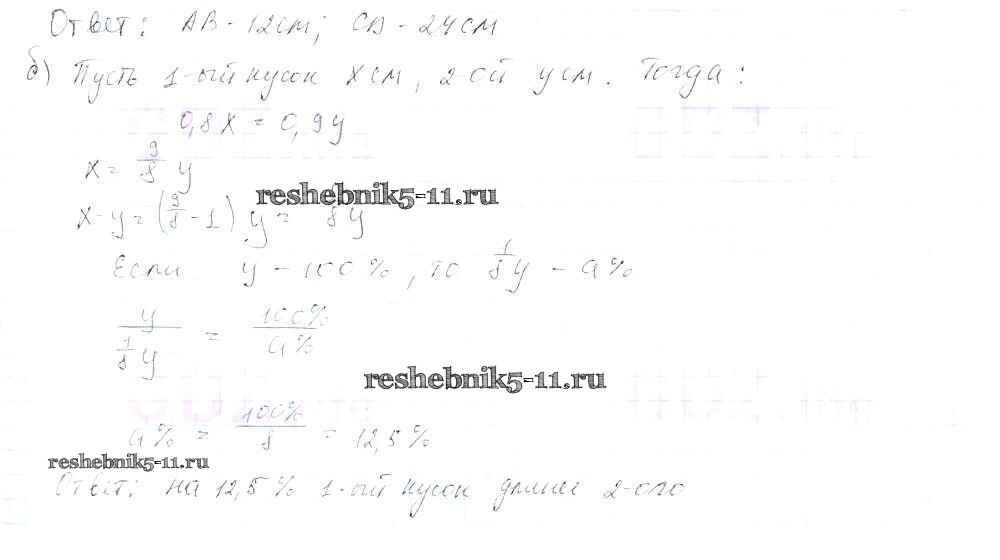 Ответ: АВ - 12см; СD - 24см
б) Пусть 1-ый кусок х см, 2-ой у см. Тогда:
0,8х = 0,9у
х = 9/8 у
reshebnik5-11.ru
х-у = (9/8 - 1) у = 8у
Если у - 100%, то 1/8 у - а%
у / 1/8 у = 100% / а%
reshebnik5-11.ru
а% = 100% / 8 = 12,5%
reshebnik5-11.ru
Ответ: на 12,5% 1-ый кусок длинее 2-ого